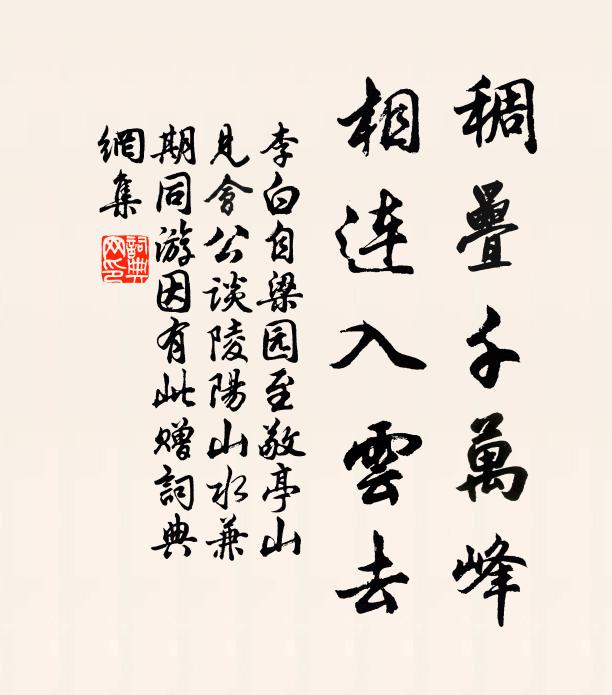 稠疊千萬峰
相连入雲去
李白自梁园至敬亭山
見會公谈陵陽山水兼
期同游因有此赠詞典
網集
詞典
网印